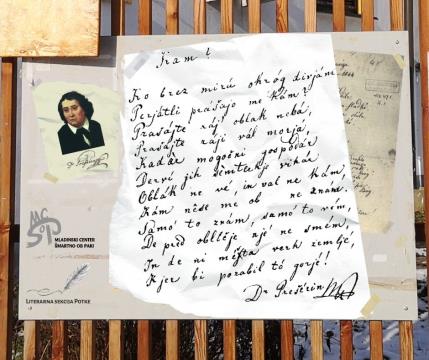 Kam?
Ko brez mirú okróg divjám,
Perjátli prašajo me kám?
Prašajte ràj' oblak nebá,
Prašajte ràji vál morjá,
Kadar mogočni gospodár
Dervi jih semtertje vihár
Oblák ne vé, in val ne kám,
Kám nêse me ob ne znám.
Samó to znám, samó to vém,
De pred obličje nję ne smém,
In de ni mésta verh zemljé,
Kjer bi pozabil tó gorjé!
Dr Prešérin
Dr. Prešerin
MC
ŠOP
MLADINSKI CENTER
ŠMARTNO OB PAKI
LITERARNA SEKCIJA POTKE